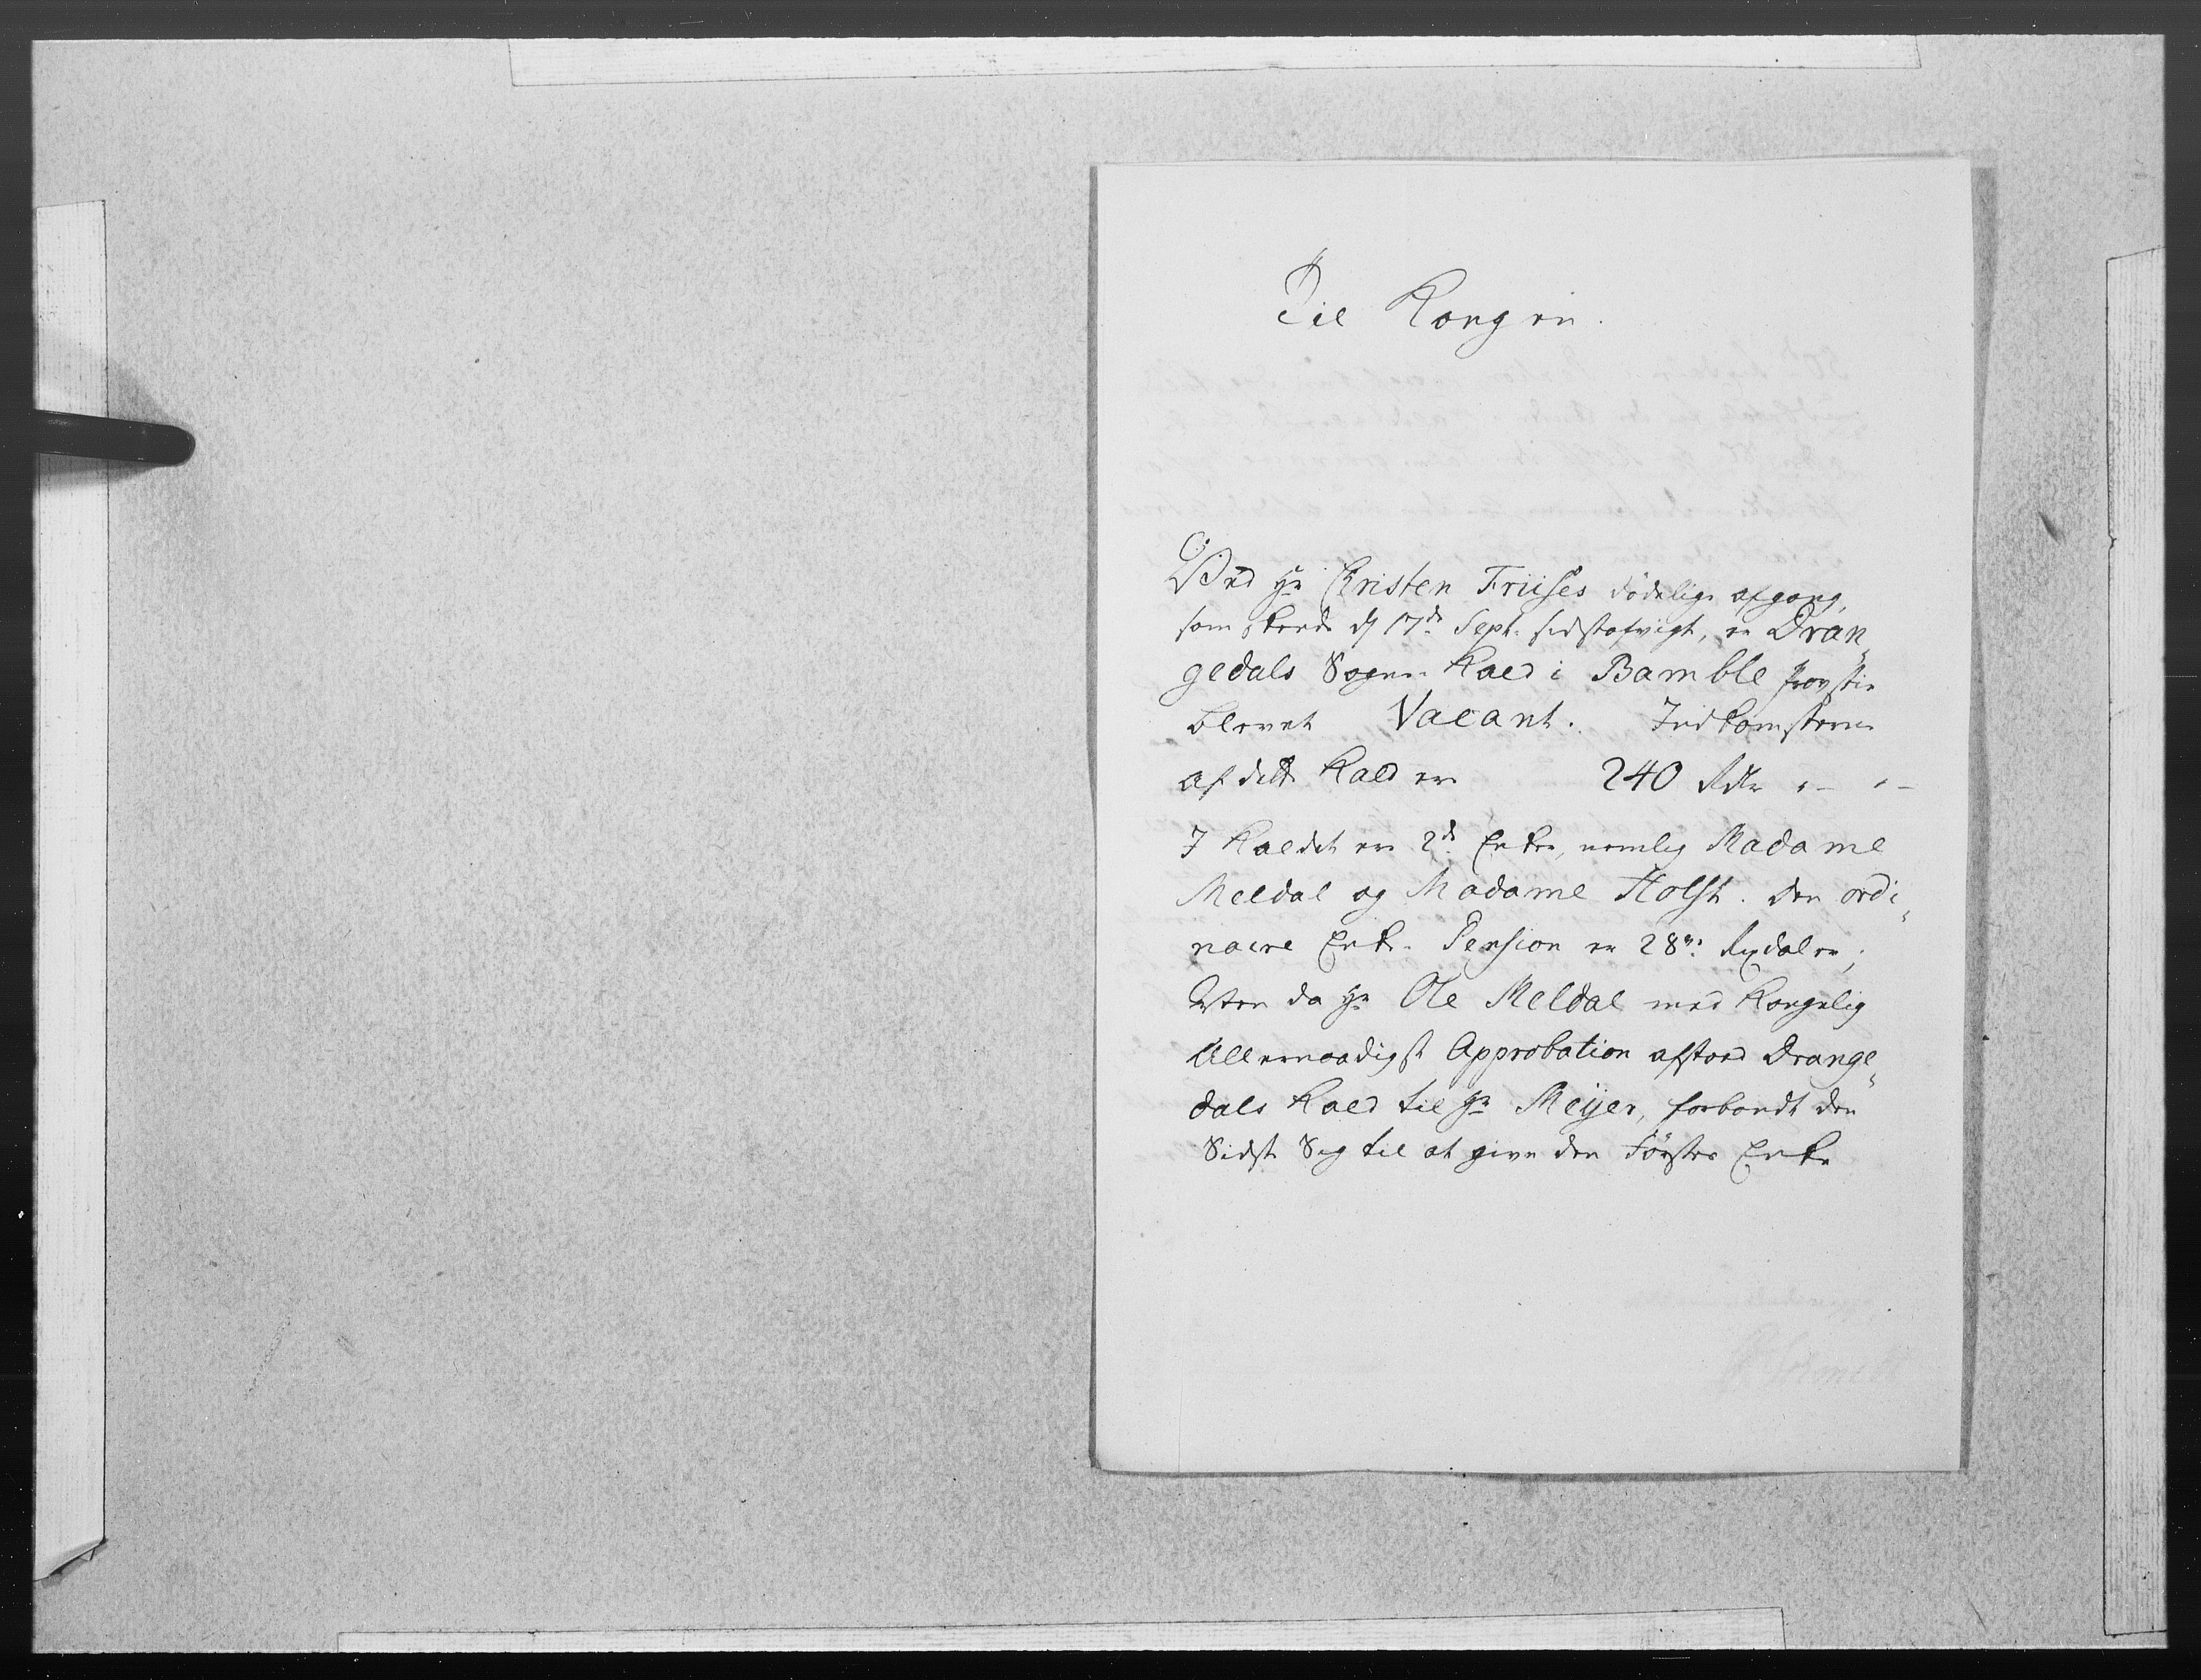 Til Kongen.
Ved Hr Christen Friises dödelige afgang,
som skeede d 17de Sept. sidstafvigt, er Dran„
gedals Sogne Kald i Bamble Provstie
blevet Vacant. Indkomsterne
af dette Kald ere 240 Rdlr „— „—
I Kaldet ere 2de Enker, nemlig Madame
Meldal og Madame Holst. Den ordi„
naire Enke-Pension er 28ve Rixdaler;
Men da Hr Ole Meldal med Kongelig
Allernaadigst Approbation afstod Drange„
dals Kald til Hr Meijer, forbandt den
Sidste Sig til at give den Förstes Enke